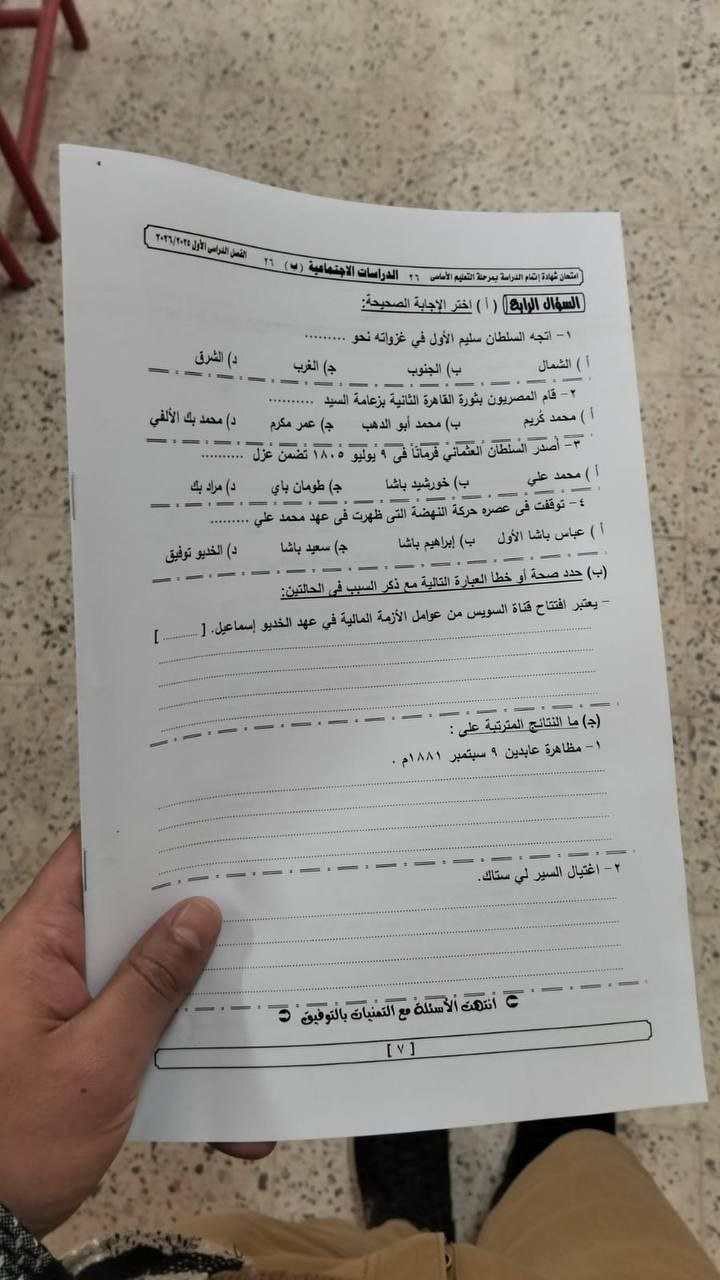 امتحان شهادة إتمام الدراسة بمرحلة التعليم الأساسى ٢٦ الدراسات الاجتماعية (ب) ٢٦ الفصل الدراسي الأول ٢٠٢٦/٢٠٢٥
السؤال الرابع ( أ ) اختر الإجابة الصحيحة:
١- اتجه السلطان سليم الأول في غزواته نحو .........
أ ) الشمال ب) الجنوب ج) الغرب د) الشرق
٢- قام المصريون بثورة القاهرة الثانية بزعامة السيد ..........
أ ) محمد كُريم ب) محمد أبو الدهب ج) عمر مكرم د) محمد بك الألفي
٣- أصدر السلطان العثماني فرمانًا فى ٩ يوليو ١٨٠٥ تضمن عزل ..........
أ ) محمد علي ب) خورشيد باشا ج) طومان باي د) مراد بك
٤- توقفت في عصره حركة النهضة التى ظهرت فى عهد محمد علي .........
أ ) عباس باشا الأول ب) إبراهيم باشا ج) سعيد باشا د) الخديو توفيق
(ب) حدد صحة أو خطأ العبارة التالية مع ذكر السبب في الحالتين:
- يعتبر افتتاح قناة السويس من عوامل الأزمة المالية في عهد الخديو إسماعيل. [ ......... ]
(ج) ما النتائج المترتبة على :
١- مظاهرة عابدين ٩ سبتمبر ١٨٨١م .
٢- اغتيال السير لي ستاك.
انتهت الأسئلة مع التمنيات بالتوفيق
[ ٧ ]